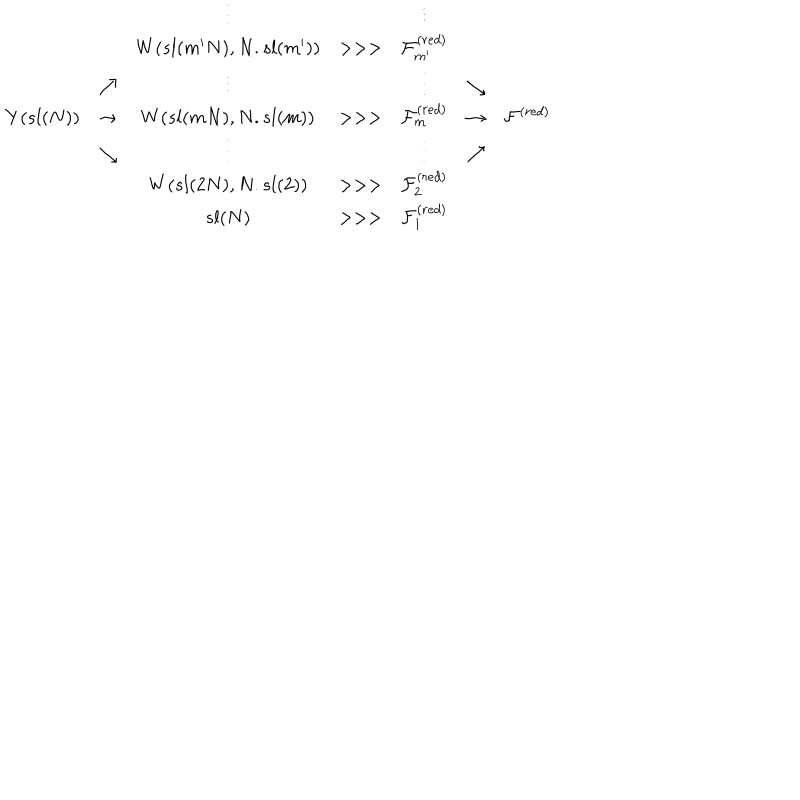 ⋮ ⋮
W(sl(m'N), N. sl(m')) >>> F_{m'}^{(red)}
↗ ⋮ ⋮ ↘
Y(sl(N)) → W(sl(mN), N. sl(m)) >>> F_m^{(red)} → F^{(red)}
↘ ⋮ ⋮ ↗
W(sl(2N), N. sl(2)) >>> F_2^{(red)}
sl(N) >>> F_1^{(red)}